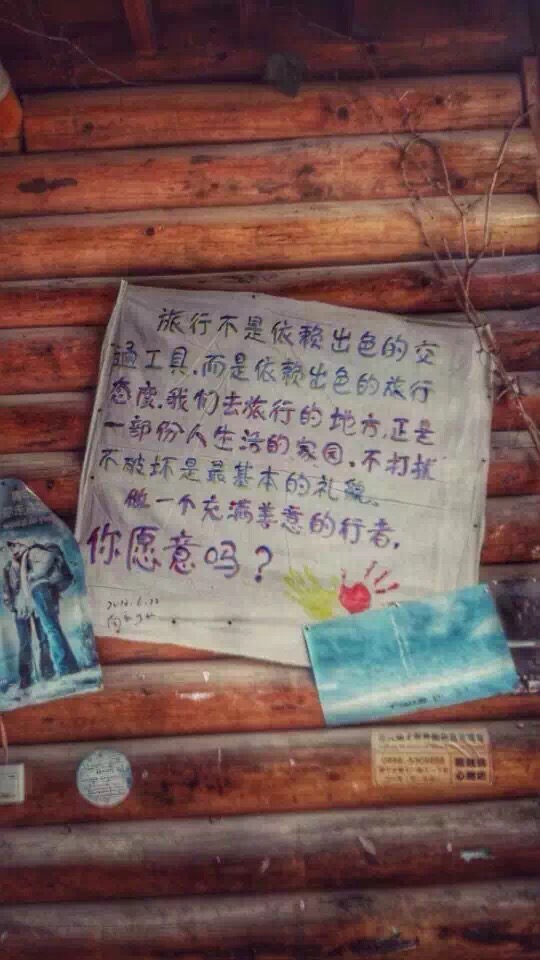 旅行不是依赖出色的交
通工具.而是依赖出色的旅行
态度.我们去旅行的地方.正是
一部份人生活的家园.不打扰
不破坏是最基本的礼貌.
做一个充满善意的行者.
你愿意吗?